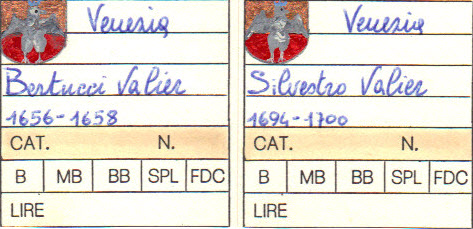 Venezia
Bertucci Valier
1656-1658
CAT. N.
B MB BB SPL FDC
LIRE
Venezia
Silvestro Valier
1694-1700
CAT. N.
B MB BB SPL FDC
LIRE